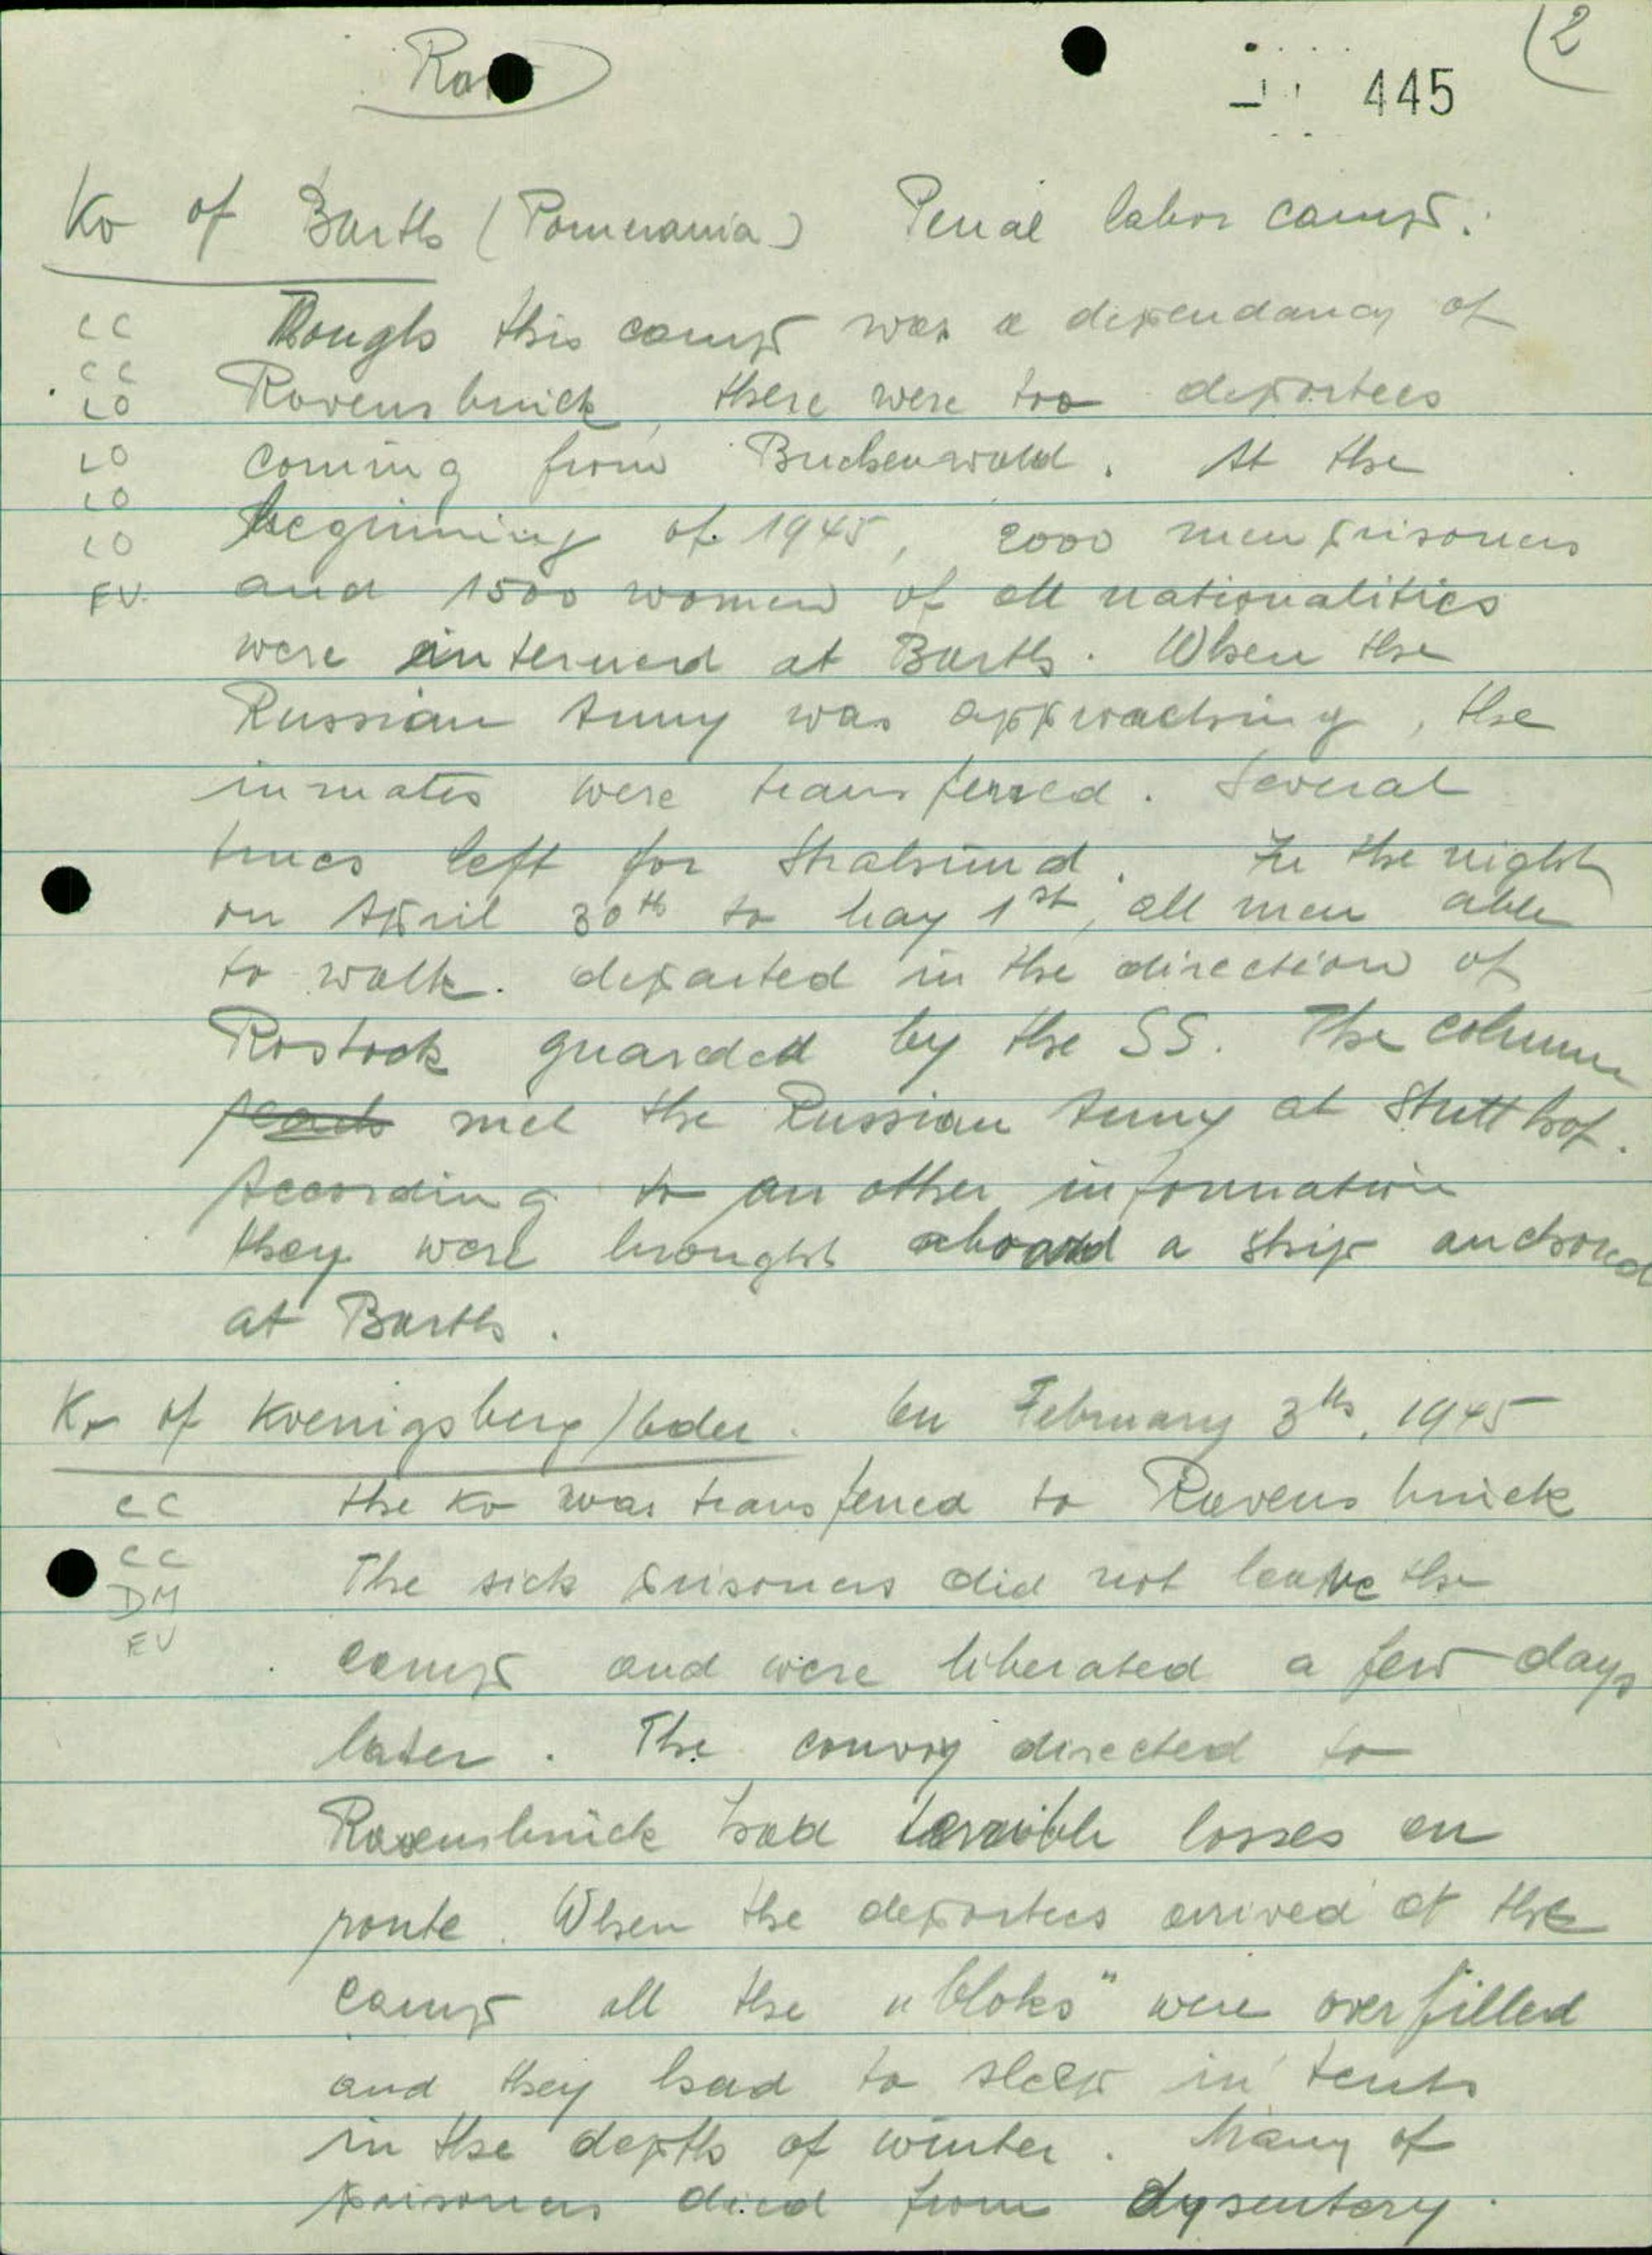 Rav
(2
445
Ko of Barth (Pomerania) Penal labor camp:
CC Though this camp was a dependancy of
CC
LO Ravensbrück, there were too deportees
LO coming from Buchenwald. At the
LO
LO beginning of 1945, 2000 men prisoners
EV. and 1500 women of all nationalities
were interned at Barth. When the
Russian Army was approaching, the
inmates were transferred. Several
times left for Stralsund. In the night
on April 30th to May 1st, all men able
to walk. departed in the direction of
Rostock guarded by the SS. The column
met the Russian Army at Stutthof.
According to an other information
they were brought aboard a ship anchored
at Barth.
Ko of Koenigsberg/Oder. On February 3th, 1945
CC the Ko was transferred to Ravensbrück
CC
DM The sick prisoners did not leave the
EV
camp and were liberated a few days
later. The convoy directed to
Ravensbrück had terrible losses en
route. When the deportees arrived at the
camp all the „bloks" were overfilled
and they had to sleep in tents
in the depth of winter. Many of
prisoners died from dysentery.